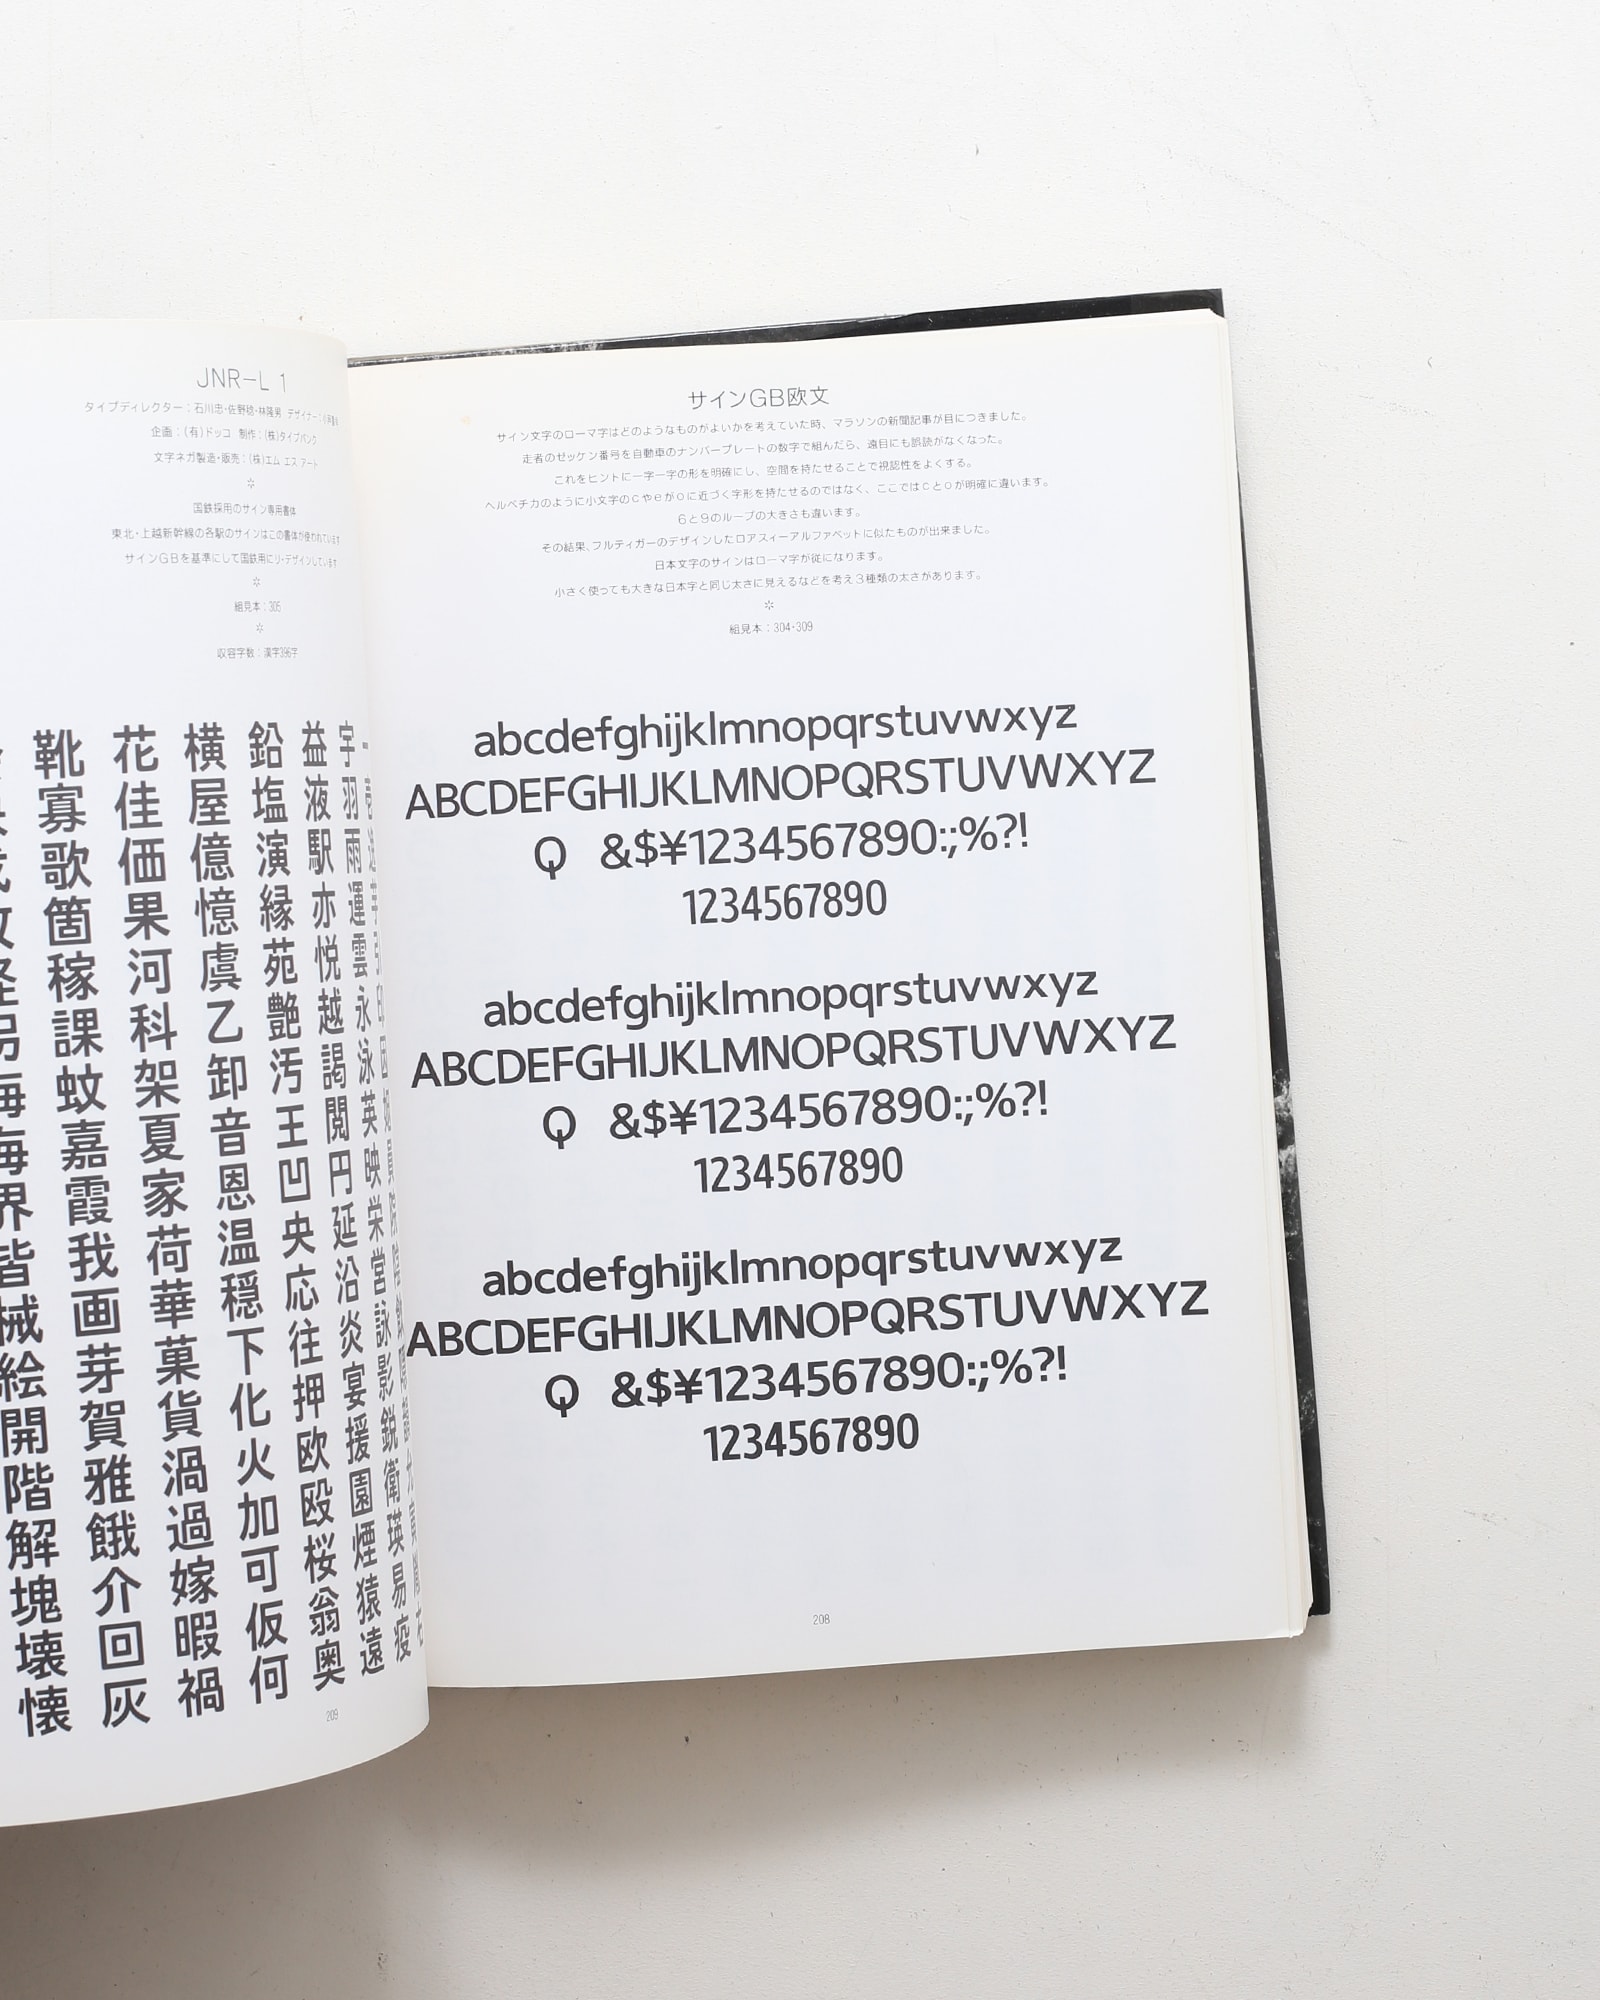 JNR-L 1
タイプディレクター：石川忠・佐野稔・林隆男 デザイナー：
企画：(有)ドッコ 制作：(株)タイプバンク
文字ネガ製造・販売：(株)エム エス アート
✲
国鉄採用のサイン専用書体
東北・上越新幹線の各駅のサインはこの書体が使われています
サインGBを基準にして国鉄用にリ・デザインしています
✲
組見本：305
✲
収容字数：漢字396字
宇羽雨運雲永泳英映栄営詠影鋭衛瑛易疫
益液駅亦悦越謁閲円延沿炎宴援園煙猿遠
鉛塩演縁苑艶汚王凹央応往押欧殴桜翁奥
横屋億憶虞乙卸音恩温穏下化火加可仮何
花佳価果河科架夏家荷華菓貨渦過嫁暇禍
靴寡歌箇稼課蚊嘉霞我画芽賀雅餓介回灰
海界皆械絵開階解塊壊懐
209
サインGB欧文
サイン文字のローマ字はどのようなものがよいかを考えていた時、マラソンの新聞記事が目につきました。
走者のゼッケン番号を自動車のナンバープレートの数字で組んだら、遠目にも誤読がなくなった。
これをヒントに一字一字の形を明確にし、空間を持たせることで視認性をよくする。
ヘルベチカのように小文字のcやeがoに近づく字形を持たせるのではなく、ここではcとoが明確に違います。
6と9のループの大きさも違います。
その結果、フルティガーのデザインしたロアスィーアルファベットに似たものが出来ました。
日本文字のサインはローマ字が従になります。
小さく使っても大きな日本字と同じ太さに見えるなどを考え3種類の太さがあります。
✲
組見本：304・309
abcdefghijklmnopqrstuvwxyz
ABCDEFGHIJKLMNOPQRSTUVWXYZ
Q &$¥1234567890:;%?!
1234567890
abcdefghijklmnopqrstuvwxyz
ABCDEFGHIJKLMNOPQRSTUVWXYZ
Q &$¥1234567890:;%?!
1234567890
abcdefghijklmnopqrstuvwxyz
ABCDEFGHIJKLMNOPQRSTUVWXYZ
Q &$¥1234567890:;%?!
1234567890
208